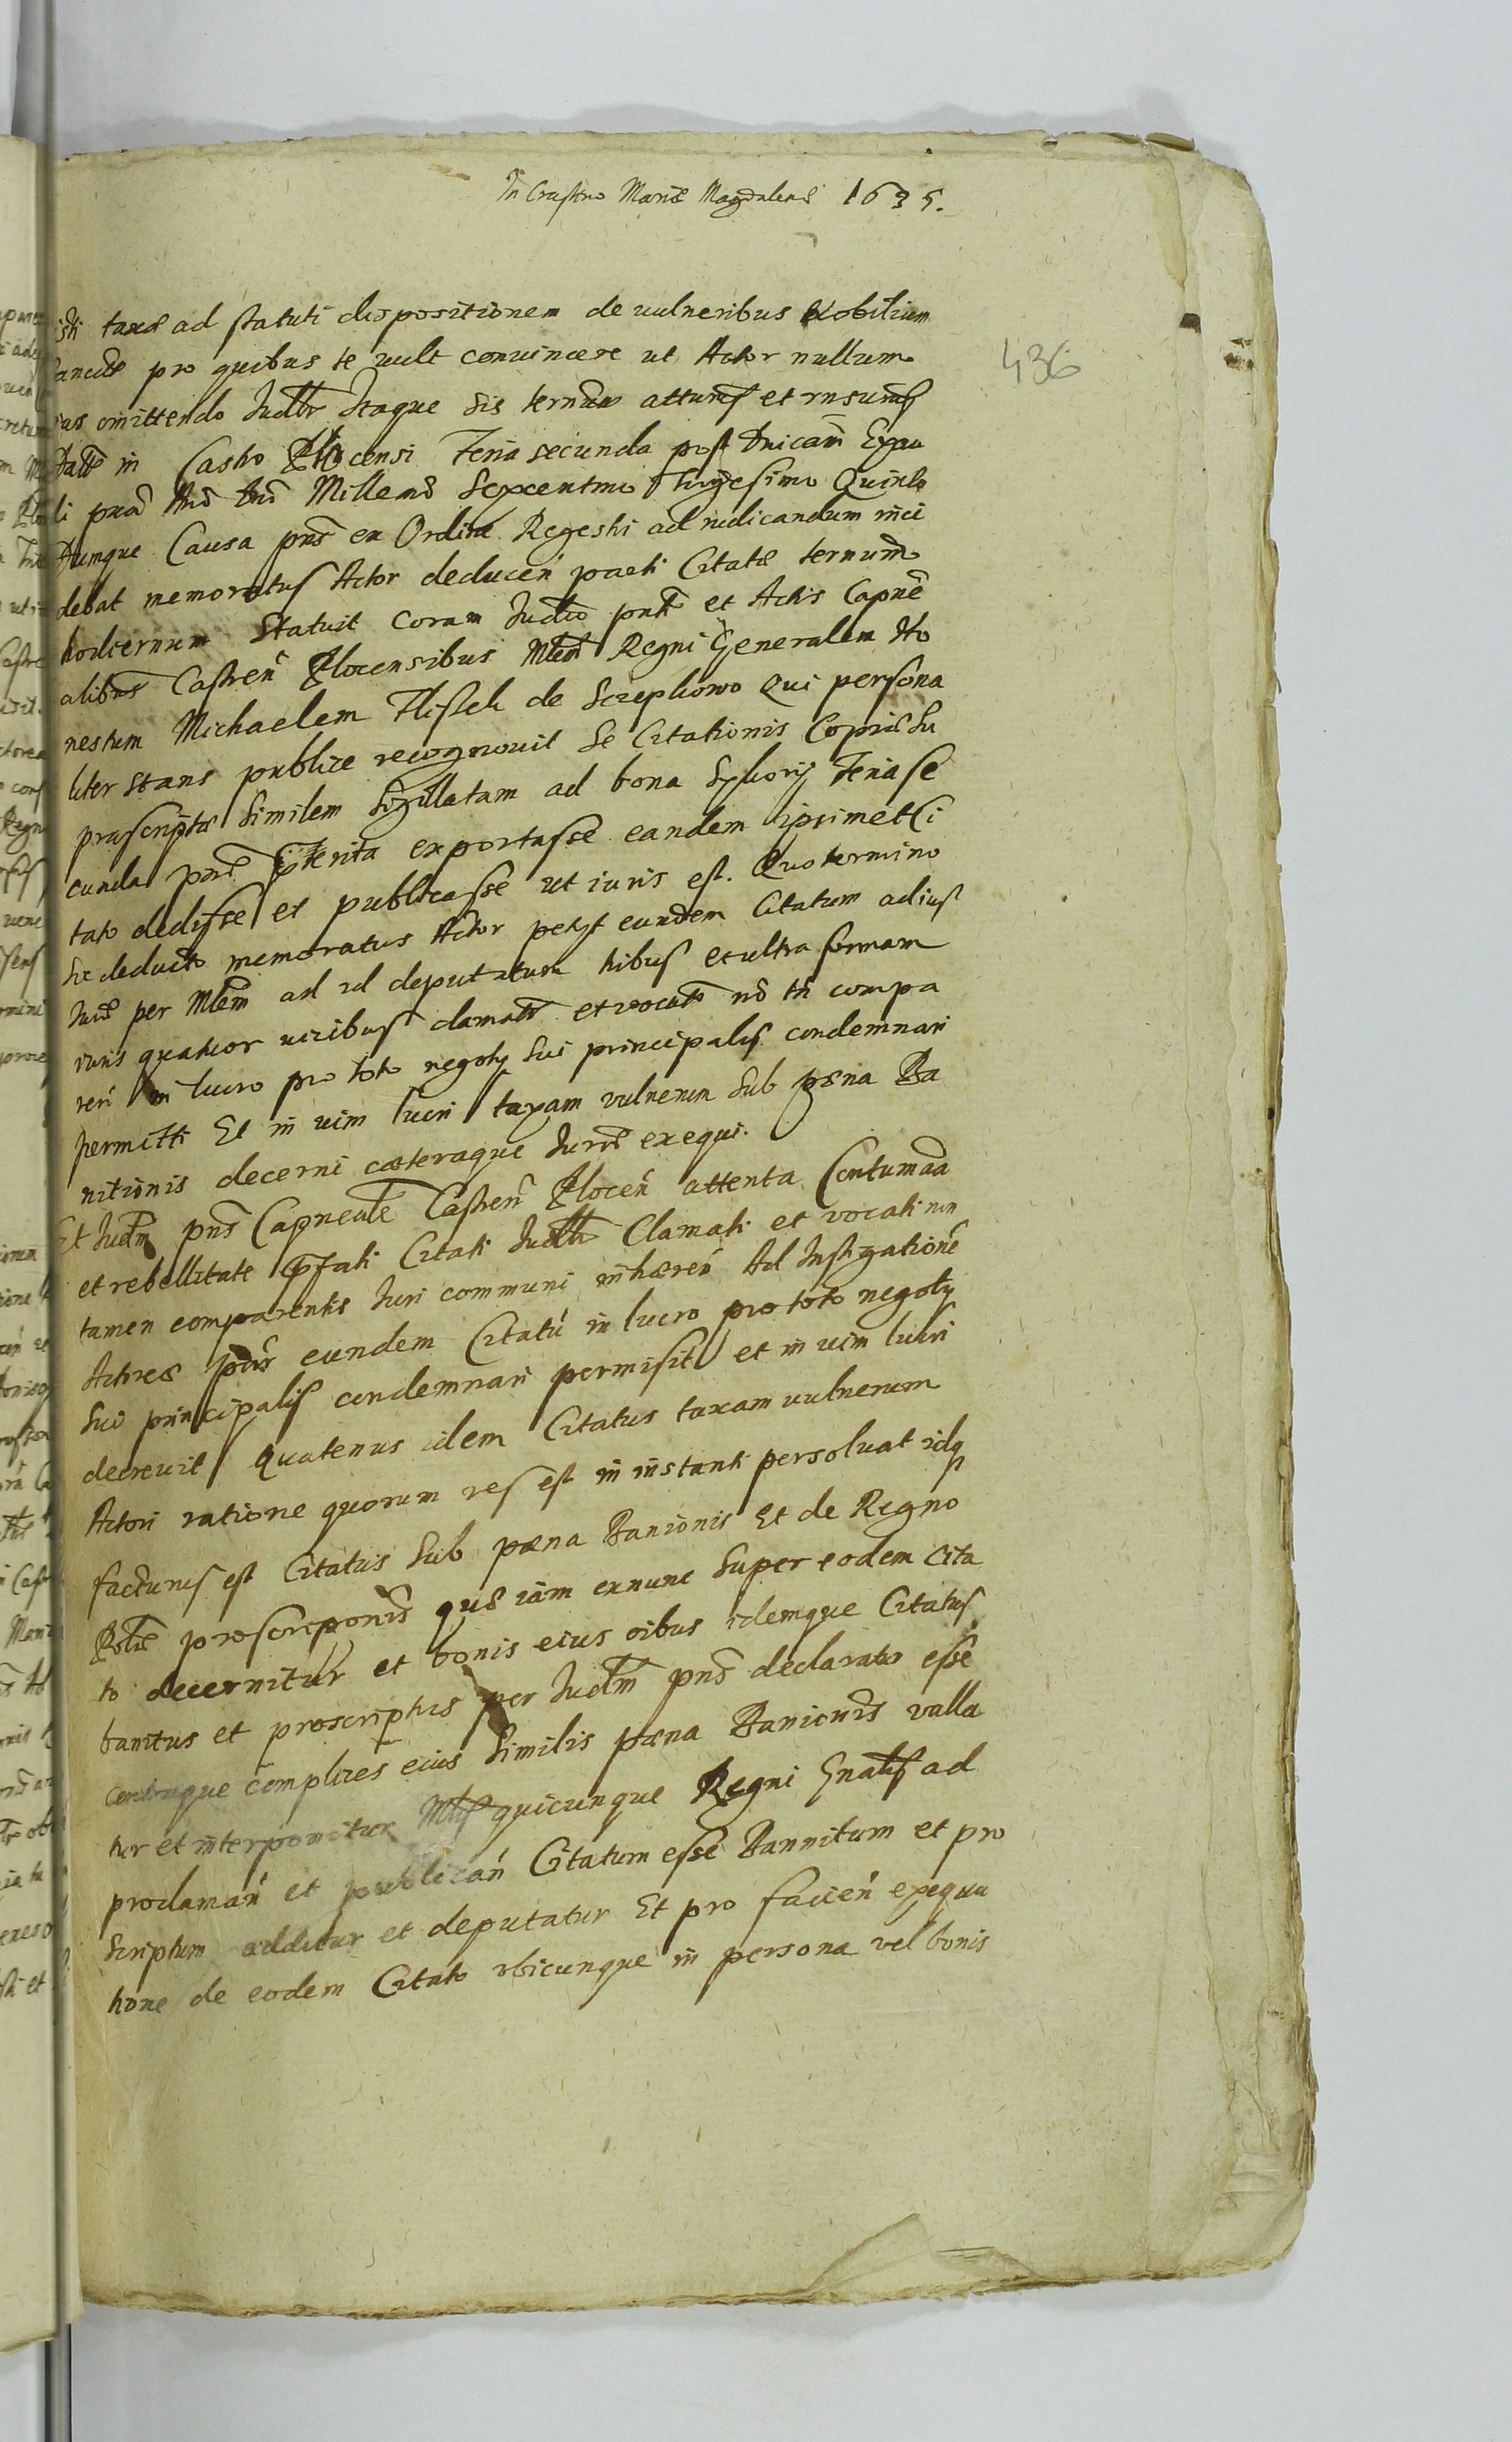 In Crastino Mariæ Magdalenæ 1635.
436
taxæ ad statuti dispositionem de vulneribus Nobilium
pro quibus te vult convincere ut Actor nullum
omittendo Judltr Itaque sis termin atturus et rnsurus
Datt in Castro Plocensi Feria secunda post Dnicam Exau
di Anō Dnī Millemō Sexcentmo Trigesimo Quinto
Dumque Causa pns̄ ex Ordine Regestri ad iudicandum inci
debat memoratus Actor deducen̄ parti Citatæ terminum
hodiernum Statuit coram Judtio pnti et Actis Capne
alibus Castren̄ Plocensibus Mlem Regni Generalem Ho
nestum Michaelem Flisek de Szephowo Qui persona
liter stans publice recognovit Se Citationis Copiæ Su
prascriptæ Similem Sigillatam ad bona Sykorÿ Feria se
cunda exportasse eandem ipsimet Ci
tato dedisse et publicasse ut iuris est. Quo termino
Sic deducto memoratus Actor petyt eundem Citatum ad iud
iuō per Mlem ad id deputatum tribus et ultra formam
iuris quatuor vicibus clamatū et vocatū nō tn̄ compa
ren̄ in lucro pro toto negoty sui principalis condemnari
permitti Et in vim lucri taxam vulnerum Sub pæna Ba
nitionis decerni cæteraque Juris exequi.
Et Judm pns̄ Capneale Castren̄ Plocen̄ attenta Contumacia
et rebellitate pfati Citati Judltr Clamati et vocati non
tamen comparentis Juri communi inhæren̄ Ad Instigationē
Actoreæ eundem Citatū in lucro pro toto negoty
Sui principalis condemnari permisit et in vim lucri
decrevit Quatenus idem Citatus taxam vulnerum
Actori ratione quorum res est in instanti persolvat idq
facturus est Citatus Sub pæna Banionis Et de Regno
Polīæ proscriponis quæ iam exnunc Super eodem Cita
to decernitur et bonis eius oibus idemque Citatus
banitus et proscriptus per Judm pns̄ declaratus esse
contraque complices eius Similis pæna Banionis valla
tur et interponitur Mlus quicunque Regni Gnalis ad
proclaman̄ et publican̄ Citatum esse Bannitum et pro
Scriptum additur et deputatur Et pro facien̄ exequu
tione de eodem Citato ubicunque in persona vel bonis